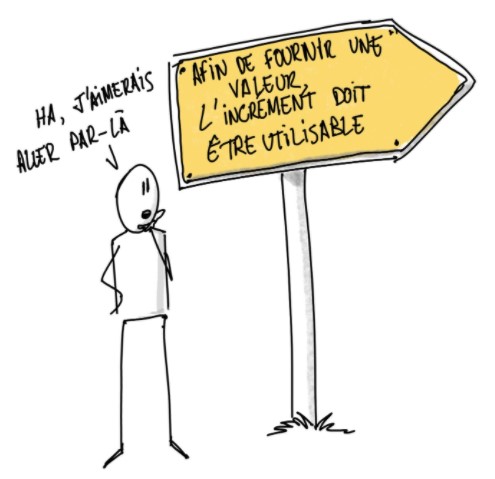 HA, J'AIMERAIS
ALLER PAR-LÀ
AFIN DE FOURNIR UNE
VALEUR,
L'INCREMENT DOIT
ÊTRE UTILISABLE